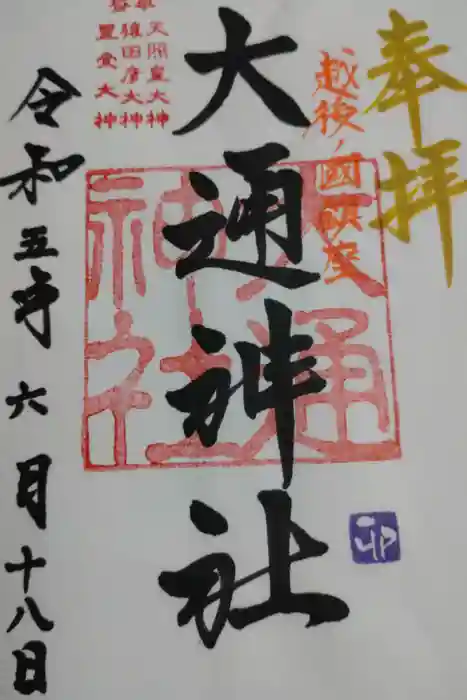 奉拝
越後ノ國鎮座
大通神社
大通神社
天照皇大神
猿田彦大神
豊受大神
卯
令和五年六月十八日